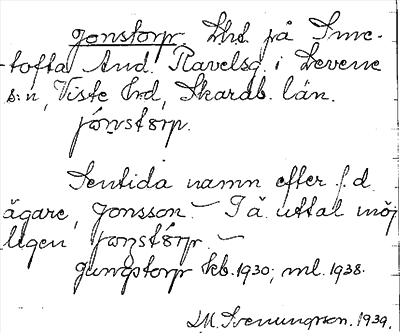 Jonstorp Lht på Sme-
tofta And. Ravelsg. i Levene
s:n, Viste hd, Skarab. län.
jónstòrp.
Sentida namn efter f.d.
ägare, Jonsson. — I ä. uttal möj
ligen jonstórp. —
Jungstorp kb. 1930; ml. 1938.
1939.